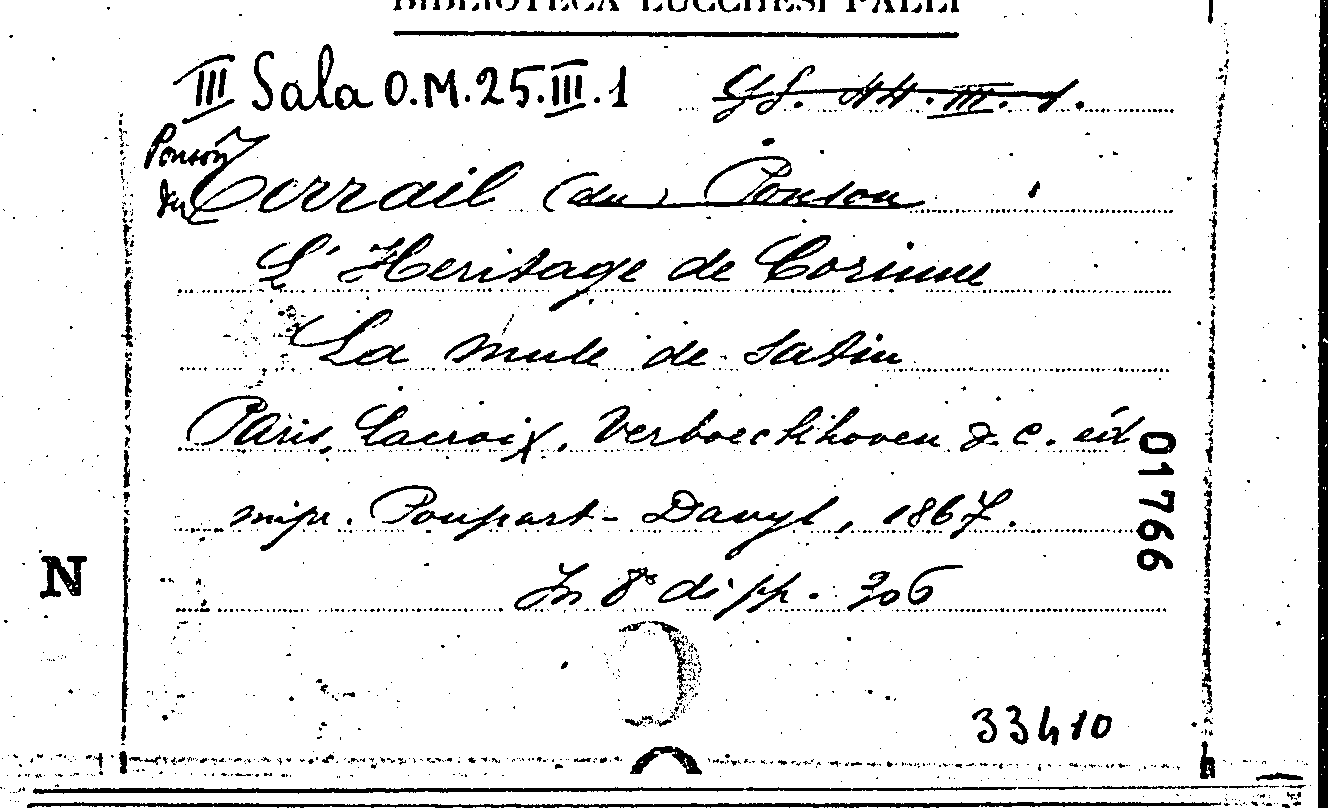 BIBLIOTECA LUCCHESI PALLI
III Sala O.M.25.III.1
Ponson du Terrail (du Ponson
L'Heritage de Corinne
La mule de satin
Paris, Lacroix, Verboeckhoven & c. éd
impr. Poupart-Davyl, 1867.
In 8° di pp. 306
N
01766
33410